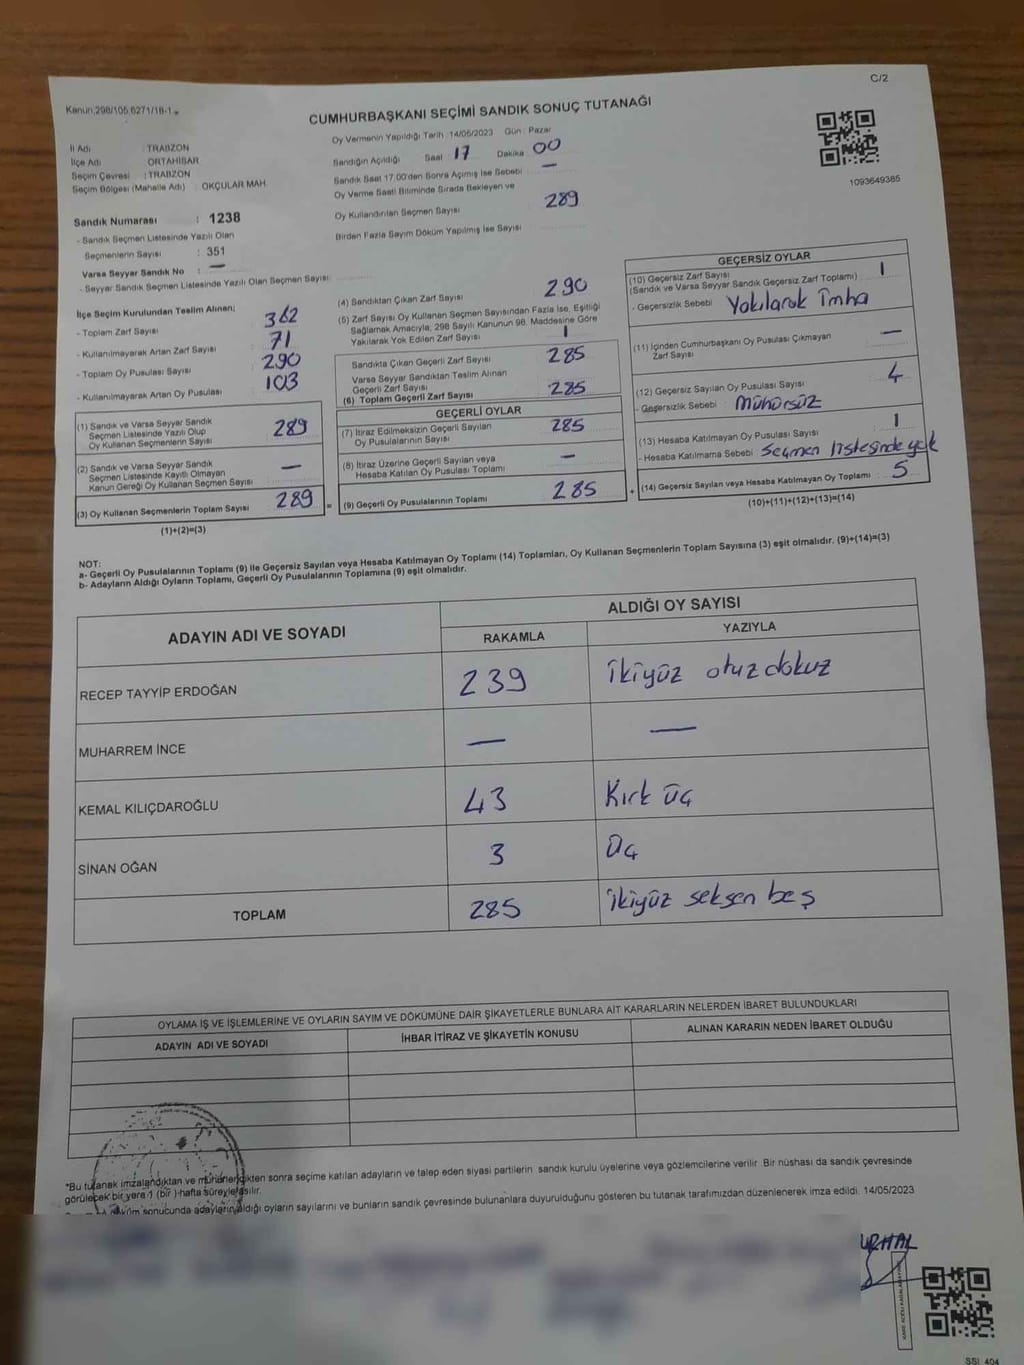 C/2
Kanun;298/105;6271/18-1
CUMHURBAŞKANI SEÇİMİ SANDIK SONUÇ TUTANAĞI
Oy Vermenin Yapıldığı Tarih : 14/05/2023 Gün : Pazar
İl Adı : TRABZON
İlçe Adı : ORTAHİSAR
Seçim Çevresi : TRABZON
Seçim Bölgesi (Mahalle Adı) : OKÇULAR MAH.
Sandığın Açıldığı Saat 17 Dakika 00
Sandık Saat 17.00'den Sonra Açımış İse Sebebi —
Oy Verme Saati Bitiminde Sırada Bekleyen ve
Oy Kullandırılan Seçmen Sayısı 289
Birden Fazla Sayım Döküm Yapılmış İse Sayısı
1093649385
Sandık Numarası : 1238
- Sandık Seçmen Listesinde Yazılı Olan
Seçmenlerin Sayısı : 351
Varsa Seyyar Sandık No : —
- Seyyar Sandık Seçmen Listesinde Yazılı Olan Seçmen Sayısı:
İlçe Seçim Kurulundan Teslim Alınan;
- Toplam Zarf Sayısı 362
- Kullanılmayarak Artan Zarf Sayısı 71
- Toplam Oy Pusulası Sayısı 290
- Kullanılmayarak Artan Oy Pusulası 103
(1) Sandık ve Varsa Seyyar Sandık
Seçmen Listesinde Yazılı Olup
Oy Kullanan Seçmenlerin Sayısı 289
(2) Sandık ve Varsa Seyyar Sandık
Seçmen Listesinde Kayıtlı Olmayan
Kanun Gereği Oy Kullanan Seçmen Sayısı —
(3) Oy Kullanan Seçmenlerin Toplam Sayısı 289 =
(1)+(2)=(3)
(4) Sandıktan Çıkan Zarf Sayısı 290
(5) Zarf Sayısı Oy Kullanan Seçmen Sayısından Fazla İse, Eşitliği
Sağlamak Amacıyla, 298 Sayılı Kanunun 98. Maddesine Göre
Yakılarak Yok Edilen Zarf Sayısı 1
Sandıkta Çıkan Geçerli Zarf Sayısı 285
Varsa Seyyar Sandıktan Teslim Alınan
Geçerli Zarf Sayısı
(6) Toplam Geçerli Zarf Sayısı 285
GEÇERLİ OYLAR
(7) İtiraz Edilmeksizin Geçerli Sayılan
Oy Pusulalarının Sayısı 285
(8) İtiraz Üzerine Geçerli Sayılan veya
Hesaba Katılan Oy Pusulası Toplamı —
(9) Geçerli Oy Pusulalarının Toplamı 285 +
GEÇERSİZ OYLAR
(10) Geçersiz Zarf Sayısı
(Sandık ve Varsa Seyyar Sandık Geçersiz Zarf Toplamı) 1
- Geçersizlik Sebebi Yakılarak İmha
(11) İçinden Cumhurbaşkanı Oy Pusulası Çıkmayan
Zarf Sayısı —
(12) Geçersiz Sayılan Oy Pusulası Sayısı 4
- Geçersizlik Sebebi : Mühürsüz
(13) Hesaba Katılmayan Oy Pusulası Sayısı 1
- Hesaba Katılmama Sebebi Seçmen listesinde yok
(14) Geçersiz Sayılan veya Hesaba Katılmayan Oy Toplamı : 5
(10)+(11)+(12)+(13)=(14)
NOT:
a- Geçerli Oy Pusulalarının Toplamı (9) ile Geçersiz Sayılan veya Hesaba Katılmayan Oy Toplamı (14) Toplamları, Oy Kullanan Seçmenlerin Toplam Sayısına (3) eşit olmalıdır. (9)+(14)=(3)
b- Adayların Aldığı Oyların Toplamı, Geçerli Oy Pusulalarının Toplamına (9) eşit olmalıdır.
ADAYIN ADI VE SOYADI ALDIĞI OY SAYISI
RAKAMLA YAZIYLA
RECEP TAYYİP ERDOĞAN 239 ikiyüz otuz dokuz
MUHARREM İNCE — —
KEMAL KILIÇDAROĞLU 43 Kırk üç
SİNAN OĞAN 3 Üç
TOPLAM 285 ikiyüz seksen beş
OYLAMA İŞ VE İŞLEMLERİNE VE OYLARIN SAYIM VE DÖKÜMÜNE DAİR ŞİKAYETLERLE BUNLARA AİT KARARLARIN NELERDEN İBARET BULUNDUKLARI
ADAYIN ADI VE SOYADI İHBAR İTİRAZ VE ŞİKAYETİN KONUSU ALINAN KARARIN NEDEN İBARET OLDUĞU
*Bu tutanak imzalandıktan ve mühürlendikten sonra seçime katılan adayların ve talep eden siyasi partilerin sandık kurulu üyelerine veya gözlemcilerine verilir. Bir nüshası da sandık çevresinde
görülecek bir yere 1 (bir) hafta süreyle asılır.
döküm sonucunda adayların aldığı oyların sayılarını ve bunların sandık çevresinde bulunanlara duyurulduğunu gösteren bu tutanak tarafımızdan düzenlenerek imza edildi. 14/05/2023
SSI 404